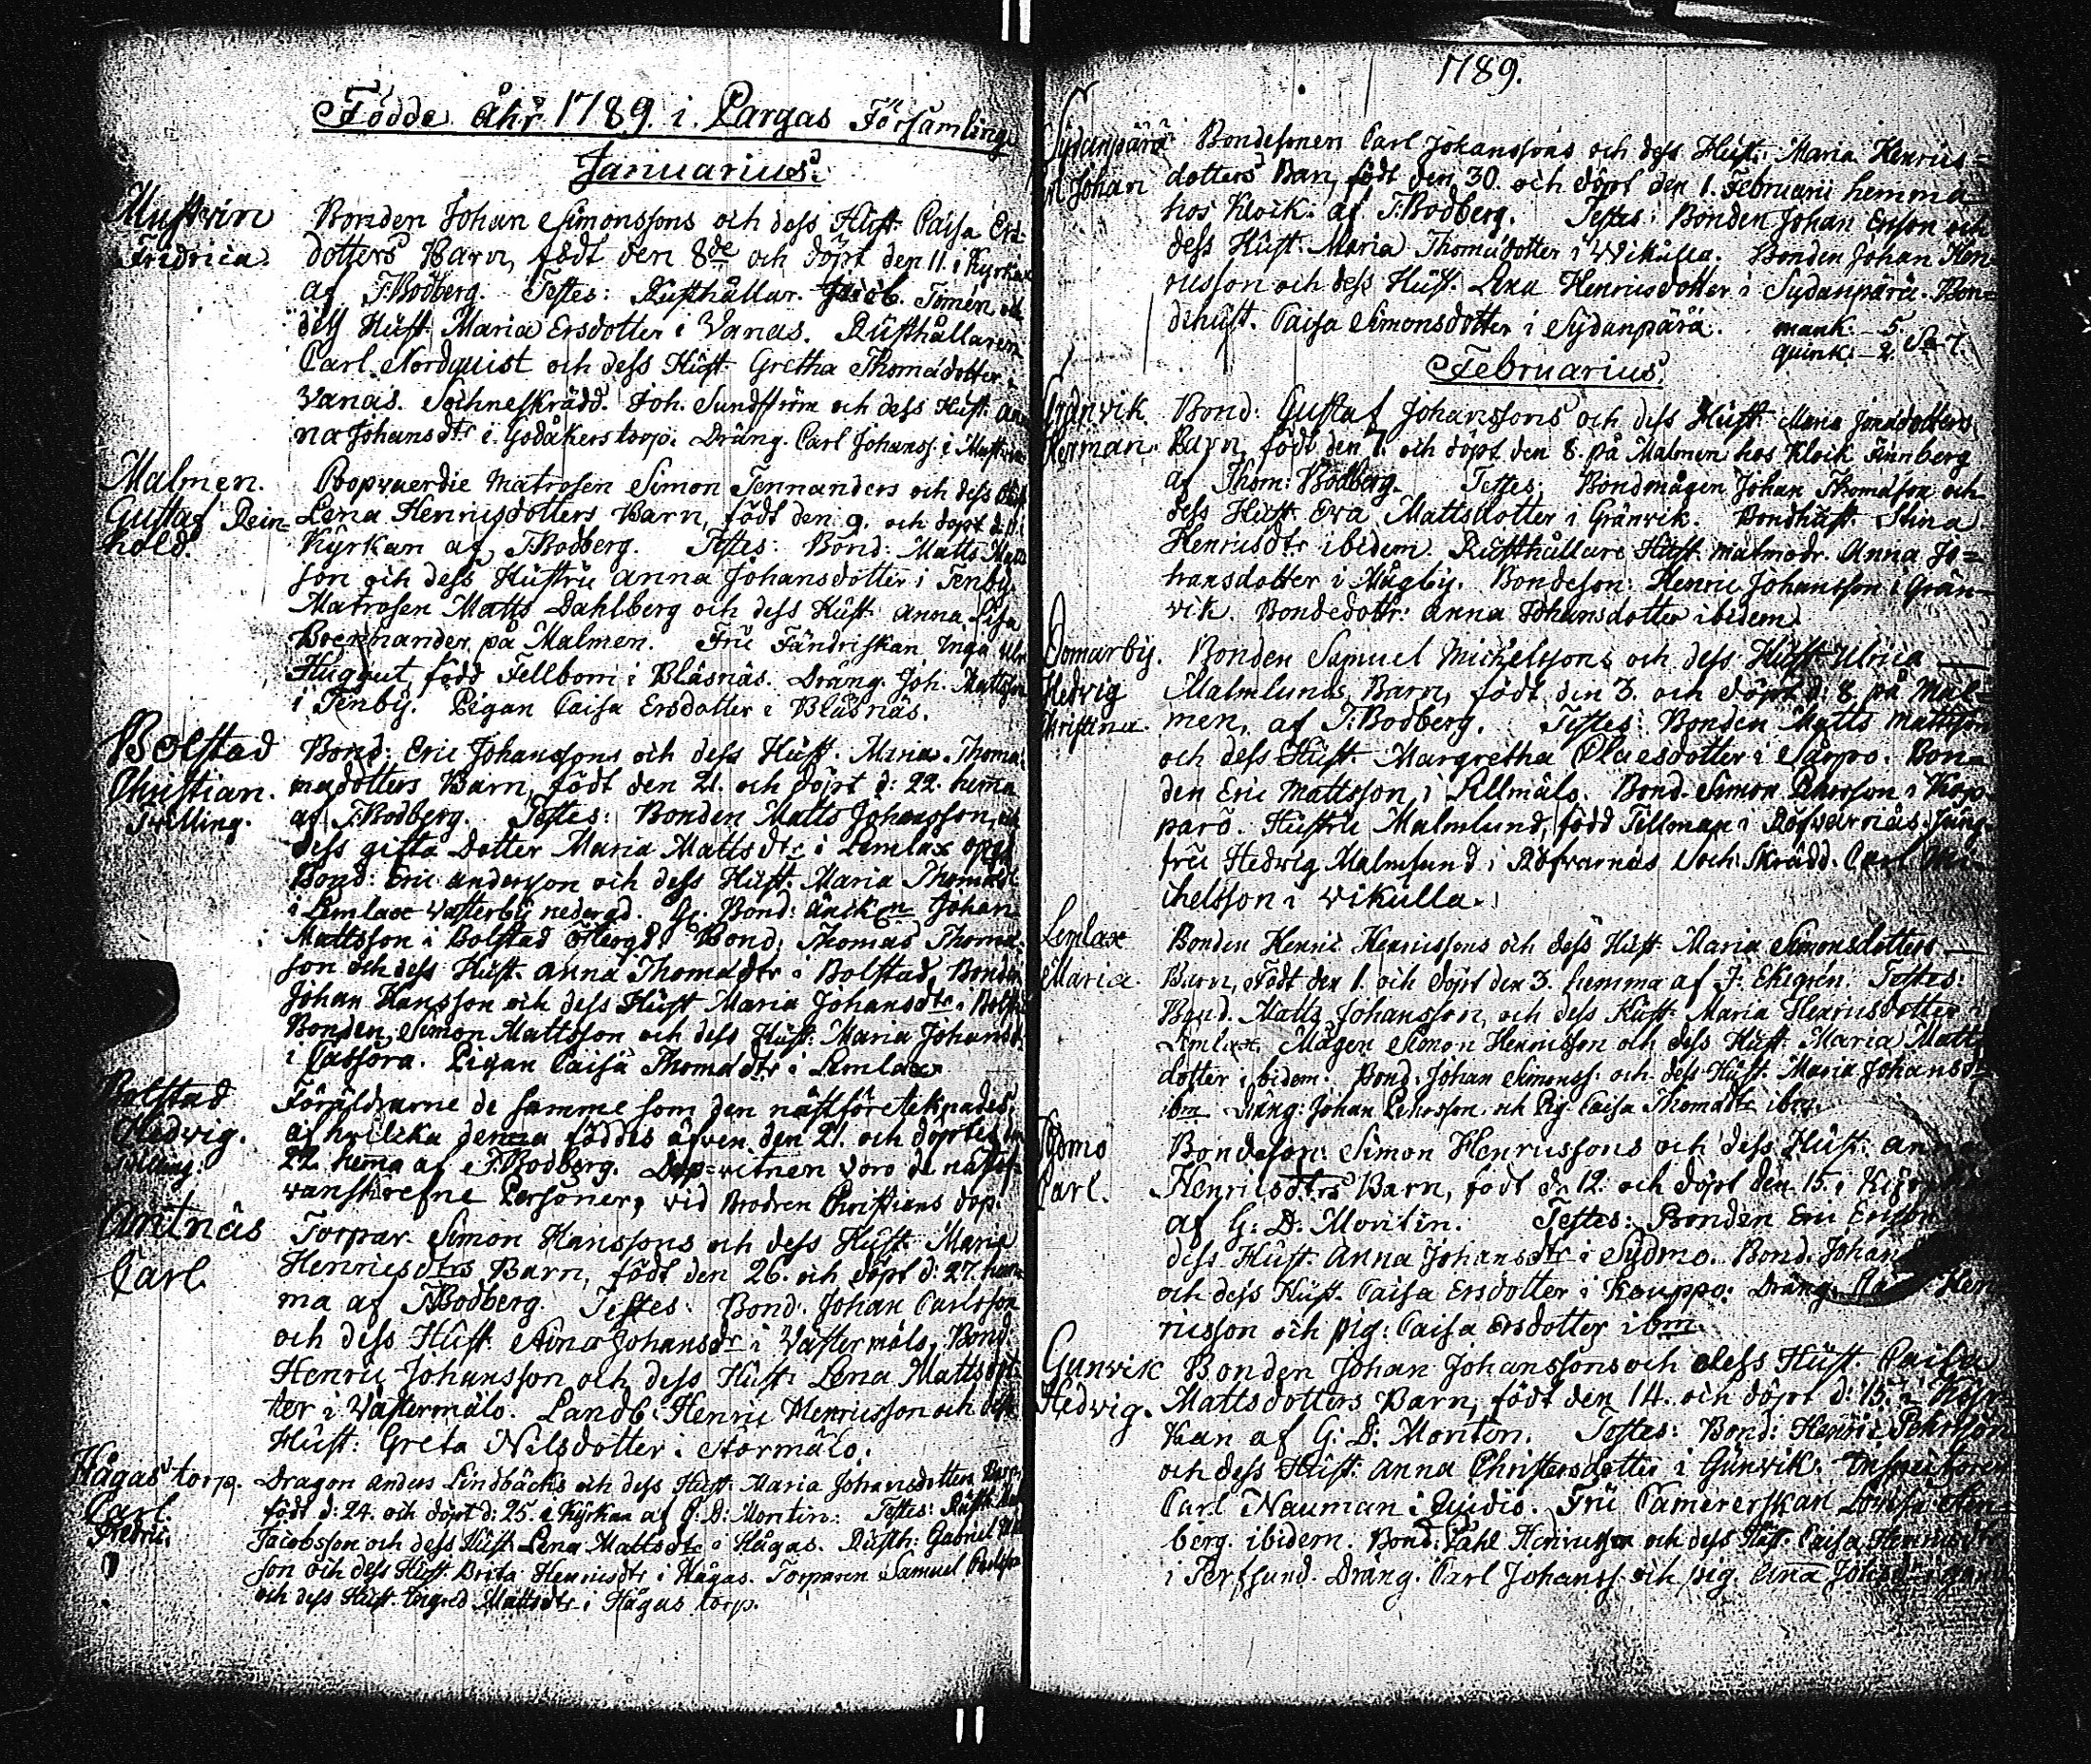 Födde åhr 1789. i Pargas Församling
Januarius.
Mustvin Bonden Johan Simonssons och dess Hust. Caisa Ers-
Fredrica. dotters Barn, födt den 8de och döpt den 11. i Kyrkan
af T. Bodberg. Testes: Rusthållar. Jacob Tomén och
dess Hust. Maria Ersdotter i Vanas. Rusthållaren
Carl Nordquist och dess Hust. Gretha Thomådotter
Vanas. Sochneskrädd. Joh. Sundström och dess Hust. An
na Johansdtr i Godåkerstorp. Dräng. Carl Johanss. i
Malmen. Coopvaerdie Matrosen Simon Tennanders och dess Hust.
Gustaf Rein- Lena Henricsdotters Barn, födt den 9. och döpt d.
hold. Kyrkan af T. Bodberg. Testes: Bond: Matts Matts
son och dess Hustru Anna Johansdotter i Tenby.
Matrosen Matts Dahlberg och dess Hust. Anna Lisa
på Malmen. Fru Fändriskan Inga Ulr
Huggut, född Fellbom i Bläsnäs. Dräng. Joh. Mattsson
i Tenby. Pigan Caisa Ersdotter i Bläsnäs.
Bolstad Bond: Eric Johanssons och dess Hust. Maria Thoma
Christian. madotters Barn, födt den 21. och döpt d: 22. hemma
Tvilling. af T. Bodberg. Testes: Bonden Matts Johansson, och
dess gifta Dotter Maria Mattsdtr i Lemlax
Bond: Eric Andersson och dess Hust. Maria Thomasd
i Lemlax Västerby nedergd. Bond: änk:n Johan
Mattsson i Bolstad östergd. Bond: Thomas Thoma
son och dess Hust. Anna Thomadtr i Bolstad, Bonden
Johan Hansson och dess Hust Maria Johansdtr i Bolst
Bonden Simon Mattsson och dess Hust: Maria Johansd.
i Cassora. Pigan Caisa Thomadtr i Lemlax
Bolstad Föräldrarne de samme som den näst före teknades,
Hedvig. af hvilcka denna föddes äfven den 21. och döptes
Tvilling: 22. hemma af T. Bodberg. Dop-vitnen voro de näst of-
vanskrefne Personer, vid Brodren Christians dop.
Antnäs Torpar. Simon Hanssons och dess Hust. Maria
Carl Henricsdtrs Barn, födt den 26. och döpt d: 27. hem
ma af T. Bodberg. Testes: Bond. Johan Carlsson
och dess Hust. Stina Johansdr i Västermålo, Bond.
Henric Johansson och dess Hust. Lena Mattsdot
ter i Västermålo. Landb. Henric Henricsson och dess
Hust: Greta Nilsdotter i Stormålo.
Hågas torp. Dragon Anders Lindbäcks och dess Hust. Maria Johansdotters Barn
Carl födt d: 24. och döpt d: 25. i Kyrkan af G: D: Montin. Testes: Rusth.
Fredric. Jacobsson och dess Hust. Lena Mattsdtr i Hågas. Rusth: Gabriel
son och dess Hust. Brita Henricsdtr i Hågas. Torparen Samuel Carlsson
och dess Hust. Ingred Mattsdtr i Hågas torp.
1789.
Sydänpärä Bondesonen Carl Johanssons och dess Hust: Maria Henrics=
Johan dotters Barn, födt den 30. och döpt den 1. Februarii hemma
hos Klock. af T. Bodberg. Testes: Bonden Johan Ersson och
dess Hust. Maria Thomadotter i Wikulla. Bonden Johan Hen
ricsson och dess Hust. Lena Henricsdotter i Sydänpärä. Bon=
dehust. Caisa Simonsdotter i Sydänpärä. mank. 5.
quink. 2. Sa 7.
Februarius.
Gränvik. Bond: Gustaf Johanssons och dess Hust. Maria Jonadotters
Herman. Barn, födt den 7. och döpt den 8. på Malmen hos Klock Finnberg
af Thom: Bodberg. Testes. Bondmågen Johan Thomasson och
dess Hust. Eva Mattsdotter i Gränvik. Bondhust. Stina
Henricsdtr ibidem. Rusthållare Hust. målmodr. Anna Jo=
hansdotter i Mågby. Bondeson: Henric Johansson i Grän-
vik. Bondedottr: Anna Johansdotter ibidem.
Domarby. Bonden Samuel Michelssons och dess Hust Ulrica
Hedvig Malmlunds Barn, födt den 3. och döpt d: 8. på Mal-
Christina. men, af T: Bodberg. Testes: Bonden Matts Mattsson
och dess Hust. Margretha Claesdotter i Sårpo. Bon=
den Eric Mattsson i Lillmälo. Bond. Simon Pehrsson i Kop
paro. Hustru Malmlund, född Tillman i Röfvarnäs. Jung
fru Hedvig Malmlund i Röfvarnäs Soch: Skrädd. Carl Mi-
chelsson i Wikulla.
Lemlax Bonden Henric Henricssons och dess Hust Maria Simonsdotters
Maria. Barn, födt den 1. och döpt den 3. hemma af J. Ekegrén. Testes:
Bond. Matts Johansson, och dess Hust. Maria Henricsdotter i
Lemlax. Mågen Simon Henricsson och dess Hust Maria Matts
dotter ibidem. Bond. Johan Simonss. och dess Hust. Maria Johansd
ibm Dräng: Johan Pehrsson och Pig. Caisa Thomadtr ibm.
Sydmo Bondeson: Simon Henricssons och dess Hust: Anna
Carl. Henricsdtrs Barn, födt d. 12. och döpt den 15. i Kyrk
af G: D: Montin. Testes: Bonden Eric Ericsson
dess Hust. Anna Johansdtr i Sydmo. Bond. Johan
och dess Hust. Caisa Ersdotter i Kauppo: Dräng. Hen
ricsson och pig: Caisa Ersdotter ibm.
Gunvik Bonden Johan Johanssons och dess Hust. Caisa
Hedvig. Mattsdotters Barn, födt den 14. och döpt d: 15. i Kyr-
kan af G: D: Montin. Testes: Bond: Henric Pehrsson
och dess Hust: Anna Christersdotter i Gunvik. Inspectoren
Carl Nauman i Qvidio. Fru Camererskan Lovisa
berg. ibidem. Bond: Påhl Henricsson och dess Hust. Caisa Henricsdtr
i Terfsund. Dräng. Carl Johanss. och pig.